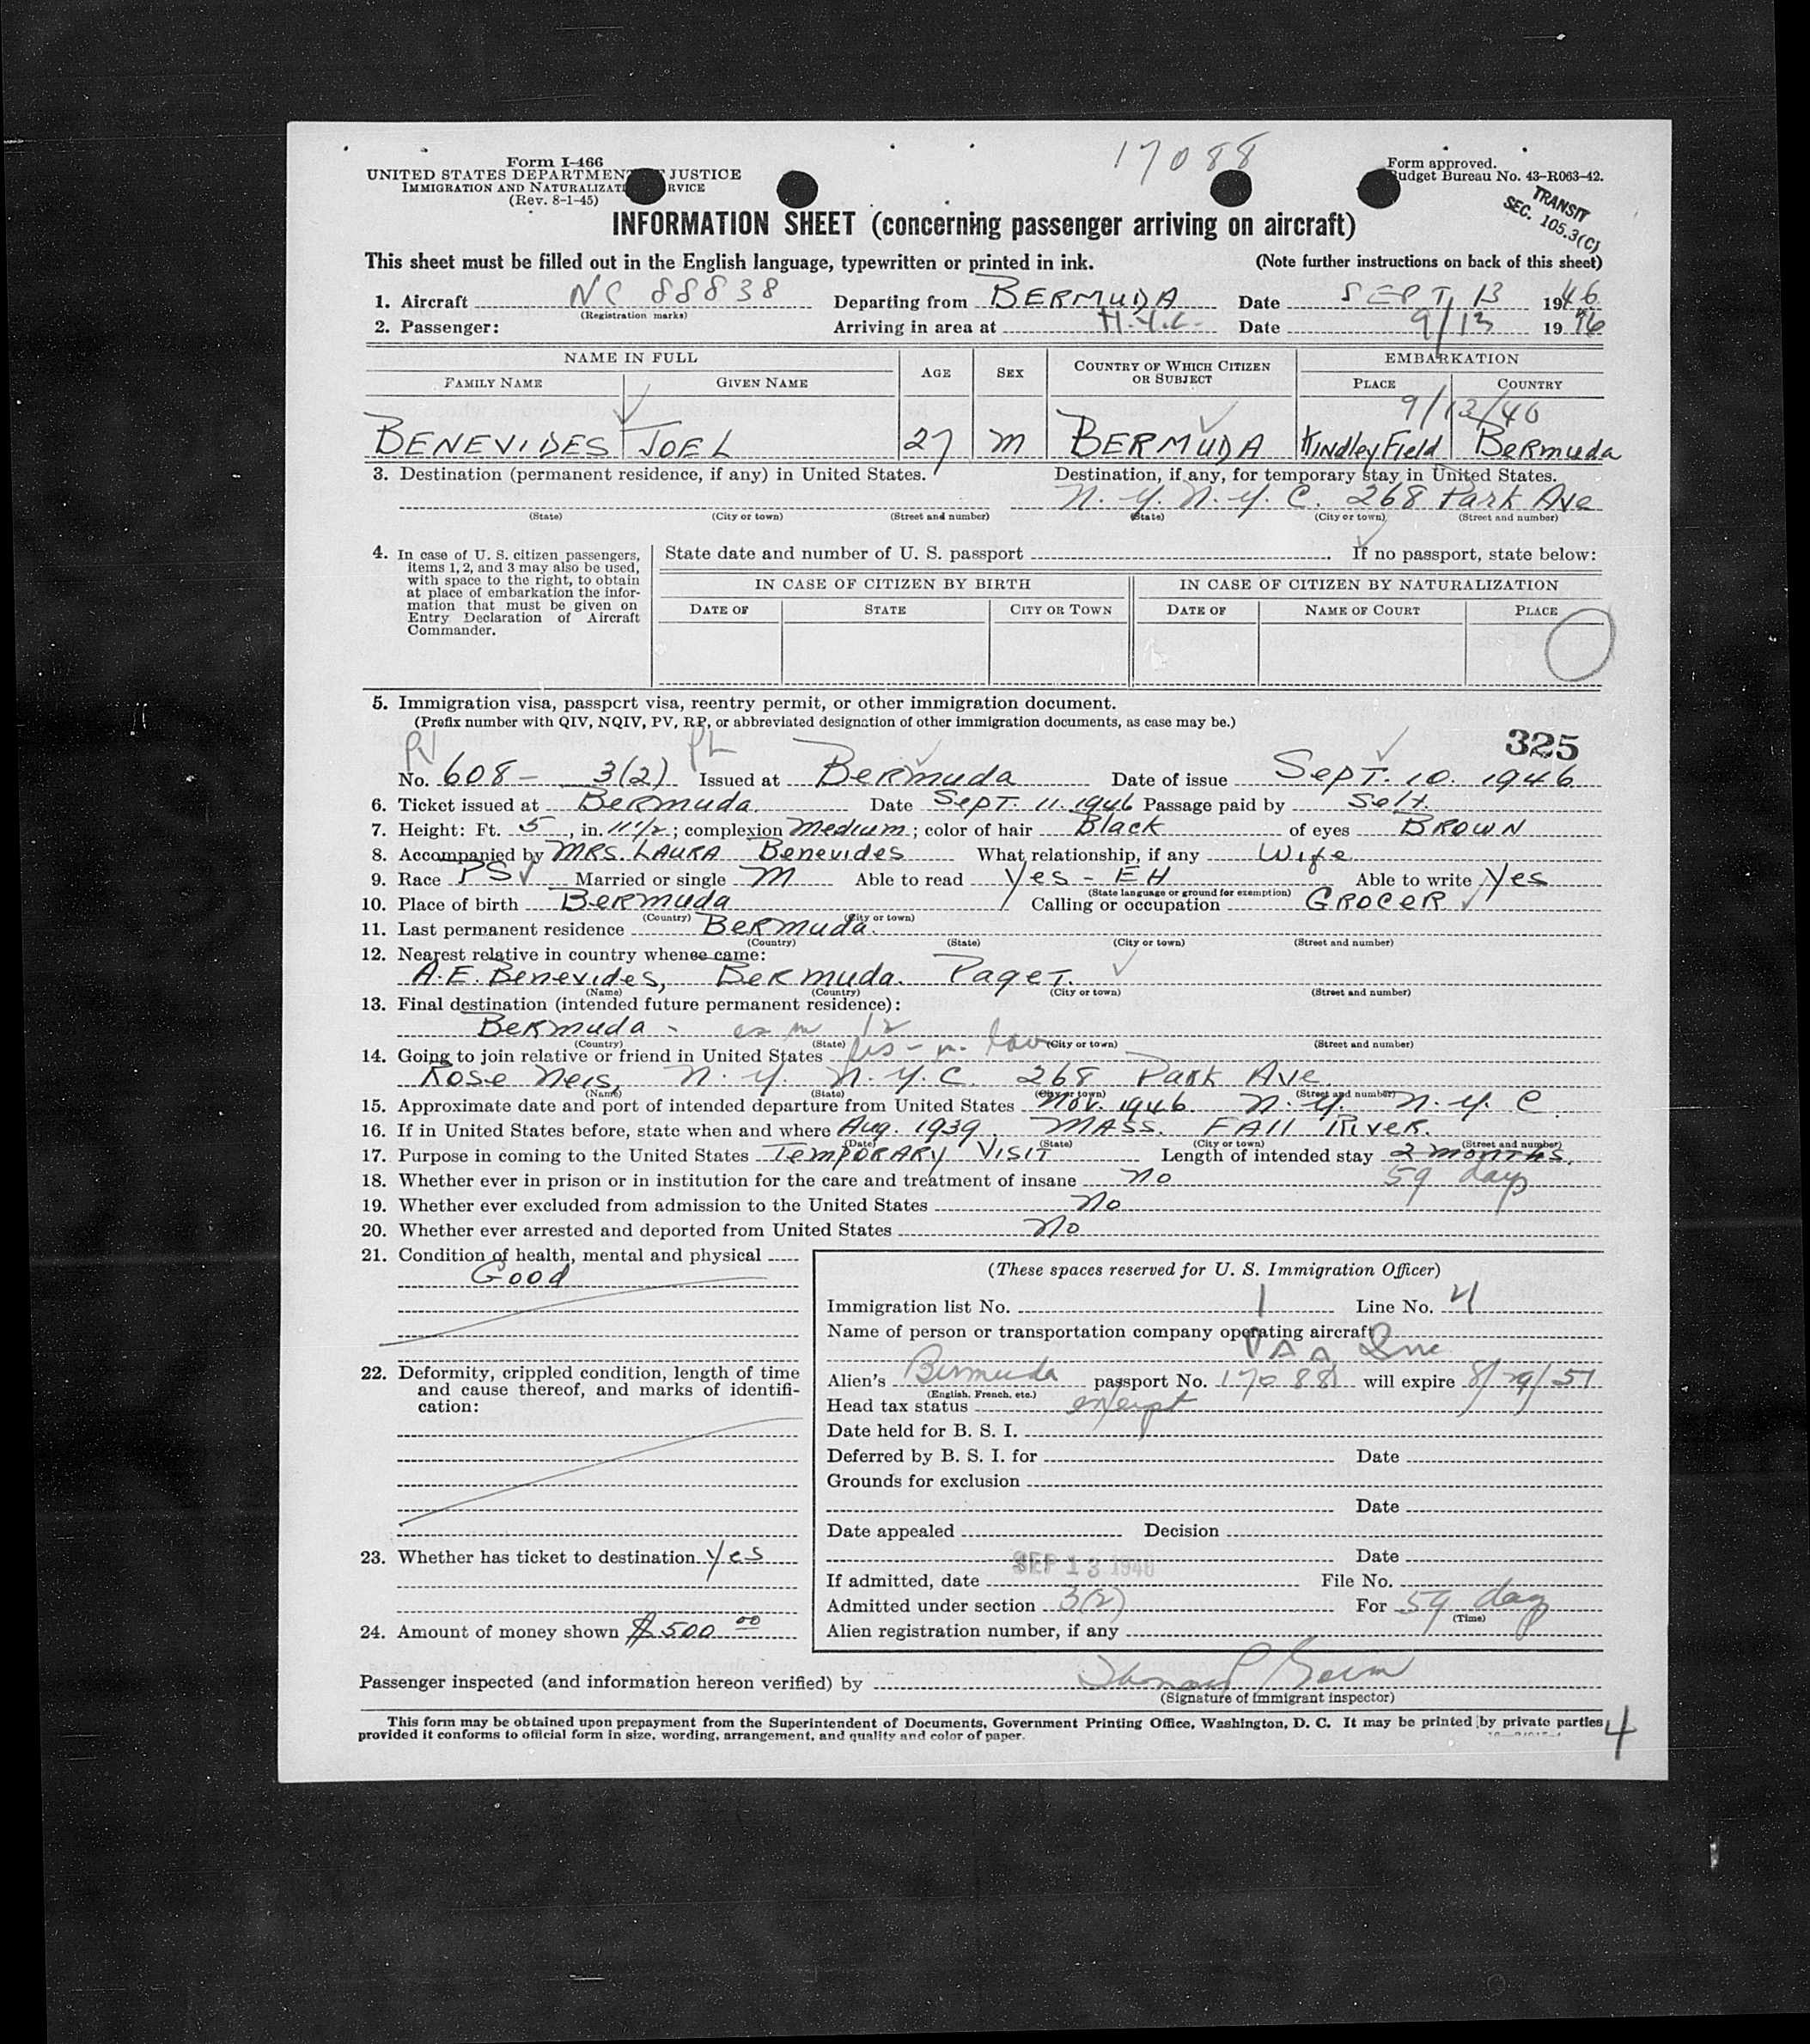 17088
Form I-466
UNITED STATES DEPARTMENT JUSTICE
IMMIGRATION AND NATURALIZAT RVICE
(Rev. 8-1-45)
Form approved.
Budget Bureau No. 43-R063-42.
TRANSIT
SEC. 105.3(C)
INFORMATION SHEET (concerning passenger arriving on aircraft)
This sheet must be filled out in the English language, typewritten or printed in ink. (Note further instructions on back of this sheet)
1. Aircraft NC 88838 Departing from BERMUDA Date SEPT. 13 1946
(Registration marks)
2. Passenger: Arriving in area at N.Y.C. Date 9/13 1946
NAME IN FULL AGE SEX COUNTRY OF WHICH CITIZEN OR SUBJECT EMBARKATION
FAMILY NAME GIVEN NAME PLACE COUNTRY
9/13/46
BENEVIDES JOEL 27 M BERMUDA Kindley Field Bermuda
3. Destination (permanent residence, if any) in United States. Destination, if any, for temporary stay in United States.
N. Y. N. Y. C. 268 Park Ave
(State) (City or town) (Street and number) (State) (City or town) (Street and number)
4. In case of U. S. citizen passengers, items 1, 2, and 3 may also be used, with space to the right, to obtain at place of embarkation the information that must be given on Entry Declaration of Aircraft Commander.
State date and number of U. S. passport . If no passport, state below:
IN CASE OF CITIZEN BY BIRTH IN CASE OF CITIZEN BY NATURALIZATION
DATE OF STATE CITY OR TOWN DATE OF NAME OF COURT PLACE
5. Immigration visa, passport visa, reentry permit, or other immigration document.
(Prefix number with QIV, NQIV, PV, RP, or abbreviated designation of other immigration documents, as case may be.)
325
PV PL
No. 608- 3(2) Issued at Bermuda Date of issue Sept. 10. 1946
6. Ticket issued at Bermuda. Date Sept. 11. 1946 Passage paid by Self.
7. Height: Ft. 5, in. 11 1/2; complexion Medium; color of hair Black of eyes BROWN
8. Accompanied by MRS. LAURA Benevides What relationship, if any Wife
9. Race PS Married or single M Able to read Yes - EH Able to write Yes
(State language or ground for exemption)
10. Place of birth Bermuda Calling or occupation GROCER
(Country) (City or town)
11. Last permanent residence Bermuda.
(Country) (State) (City or town) (Street and number)
12. Nearest relative in country whence came:
A.E. Benevides, Bermuda. Paget.
(Name) (Country) (City or town) (Street and number)
13. Final destination (intended future permanent residence):
Bermuda -
(Country) (State) (City or town) (Street and number)
14. Going to join relative or friend in United States
Rose Neis, N. Y. N. Y. C. 268 Park Ave.
(Name) (State) (City or town) (Street and number)
15. Approximate date and port of intended departure from United States Nov. 1946. N. Y. N. Y. C.
16. If in United States before, state when and where Aug. 1939, MASS. FALL RIVER.
(Date) (State) (City or town) (Street and number)
17. Purpose in coming to the United States TEMPORARY VISIT Length of intended stay 2 months.
59 days
18. Whether ever in prison or in institution for the care and treatment of insane No
19. Whether ever excluded from admission to the United States No
20. Whether ever arrested and deported from United States No
21. Condition of health, mental and physical
Good
22. Deformity, crippled condition, length of time and cause thereof, and marks of identification:
23. Whether has ticket to destination yes
24. Amount of money shown $500 00
(These spaces reserved for U. S. Immigration Officer)
Immigration list No. 1 Line No. 4
Name of person or transportation company operating aircraft
PAA Inc
Alien's Bermuda passport No. 17088 will expire 8/29/51
(English, French, etc.)
Head tax status exempt
Date held for B. S. I.
Deferred by B. S. I. for Date
Grounds for exclusion
Date
Date appealed Decision
Date
If admitted, date SEP 13 1946 File No.
Admitted under section 3(2) For 59 days
(Time)
Alien registration number, if any
Passenger inspected (and information hereon verified) by
(Signature of immigrant inspector)
This form may be obtained upon prepayment from the Superintendent of Documents, Government Printing Office, Washington, D. C. It may be printed by private parties
provided it conforms to official form in size, wording, arrangement, and quality and color of paper.
4